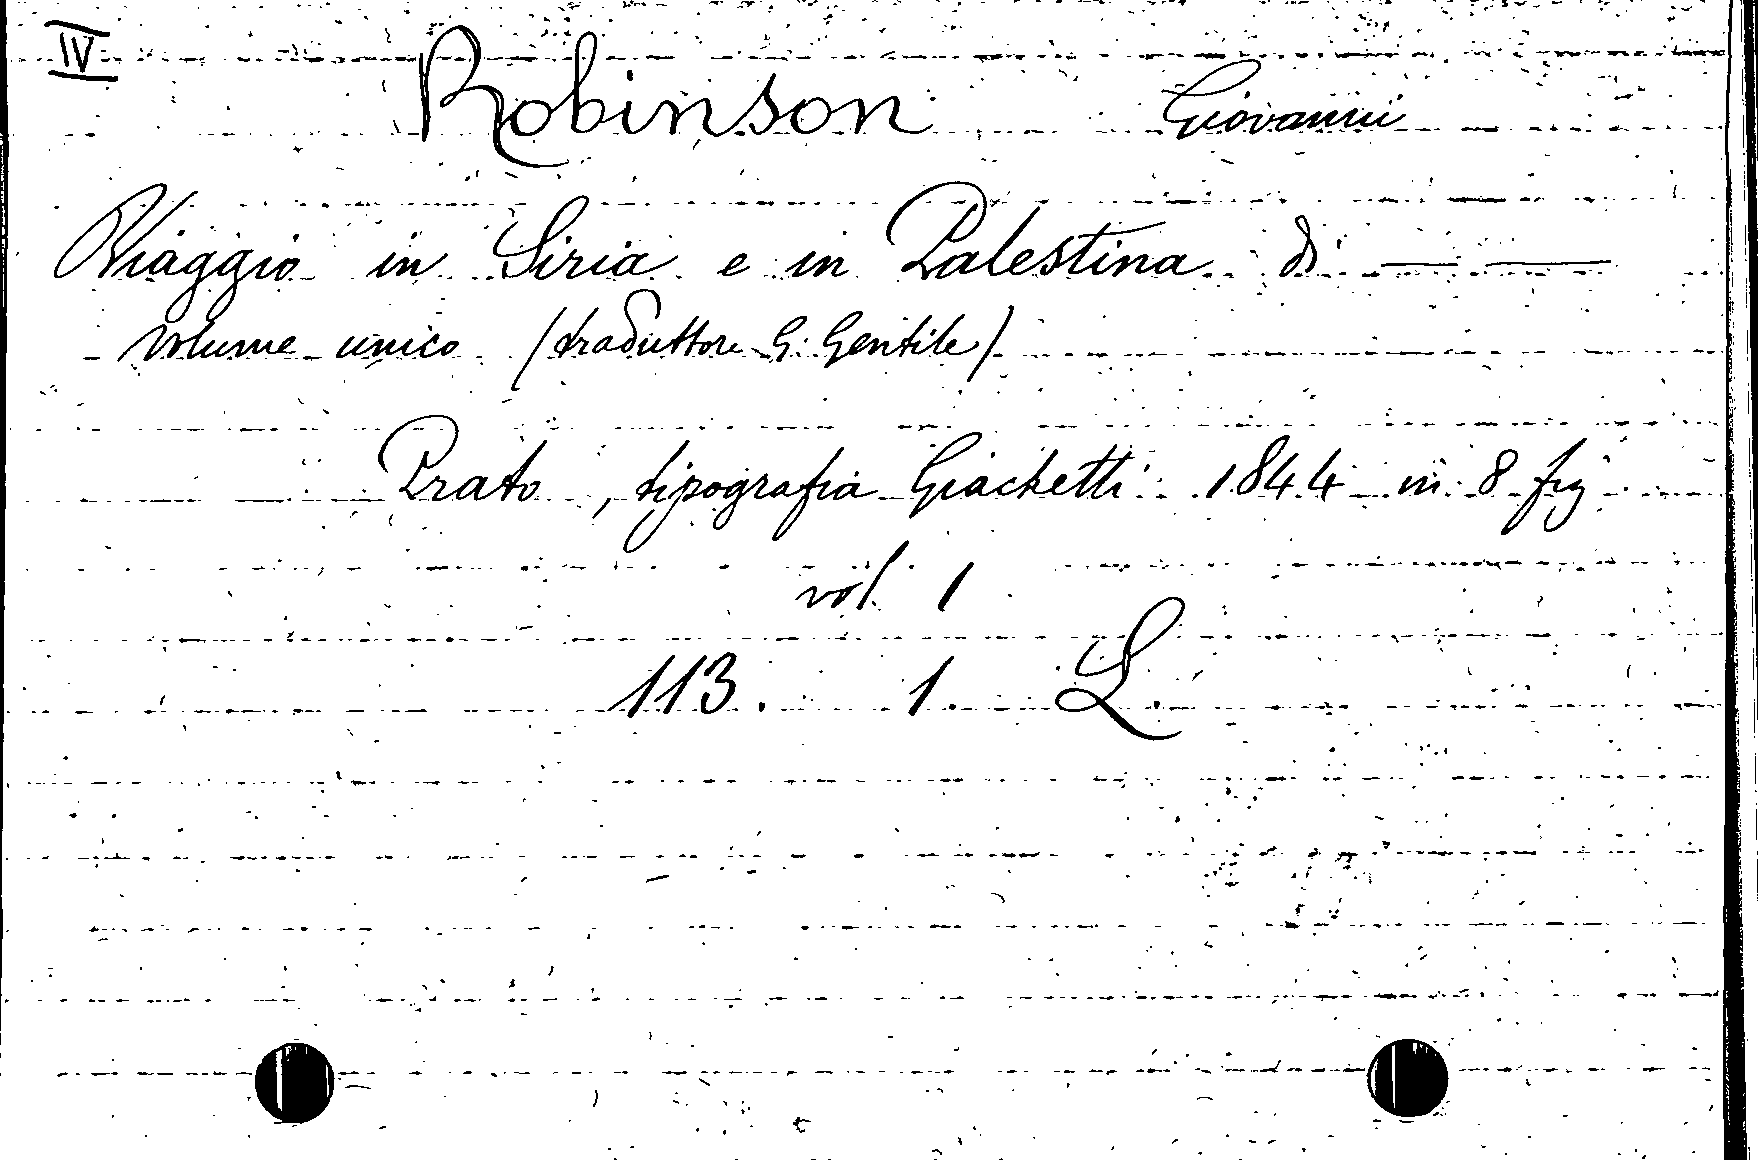 IV
Robinson Giovanni
Viaggio in Siria e in Palestina di — —
volume unico (traduttore G. Gentile)
Prato, tipografia Giachetti 1844 in 8 fig
vol. 1
113. 1. L.